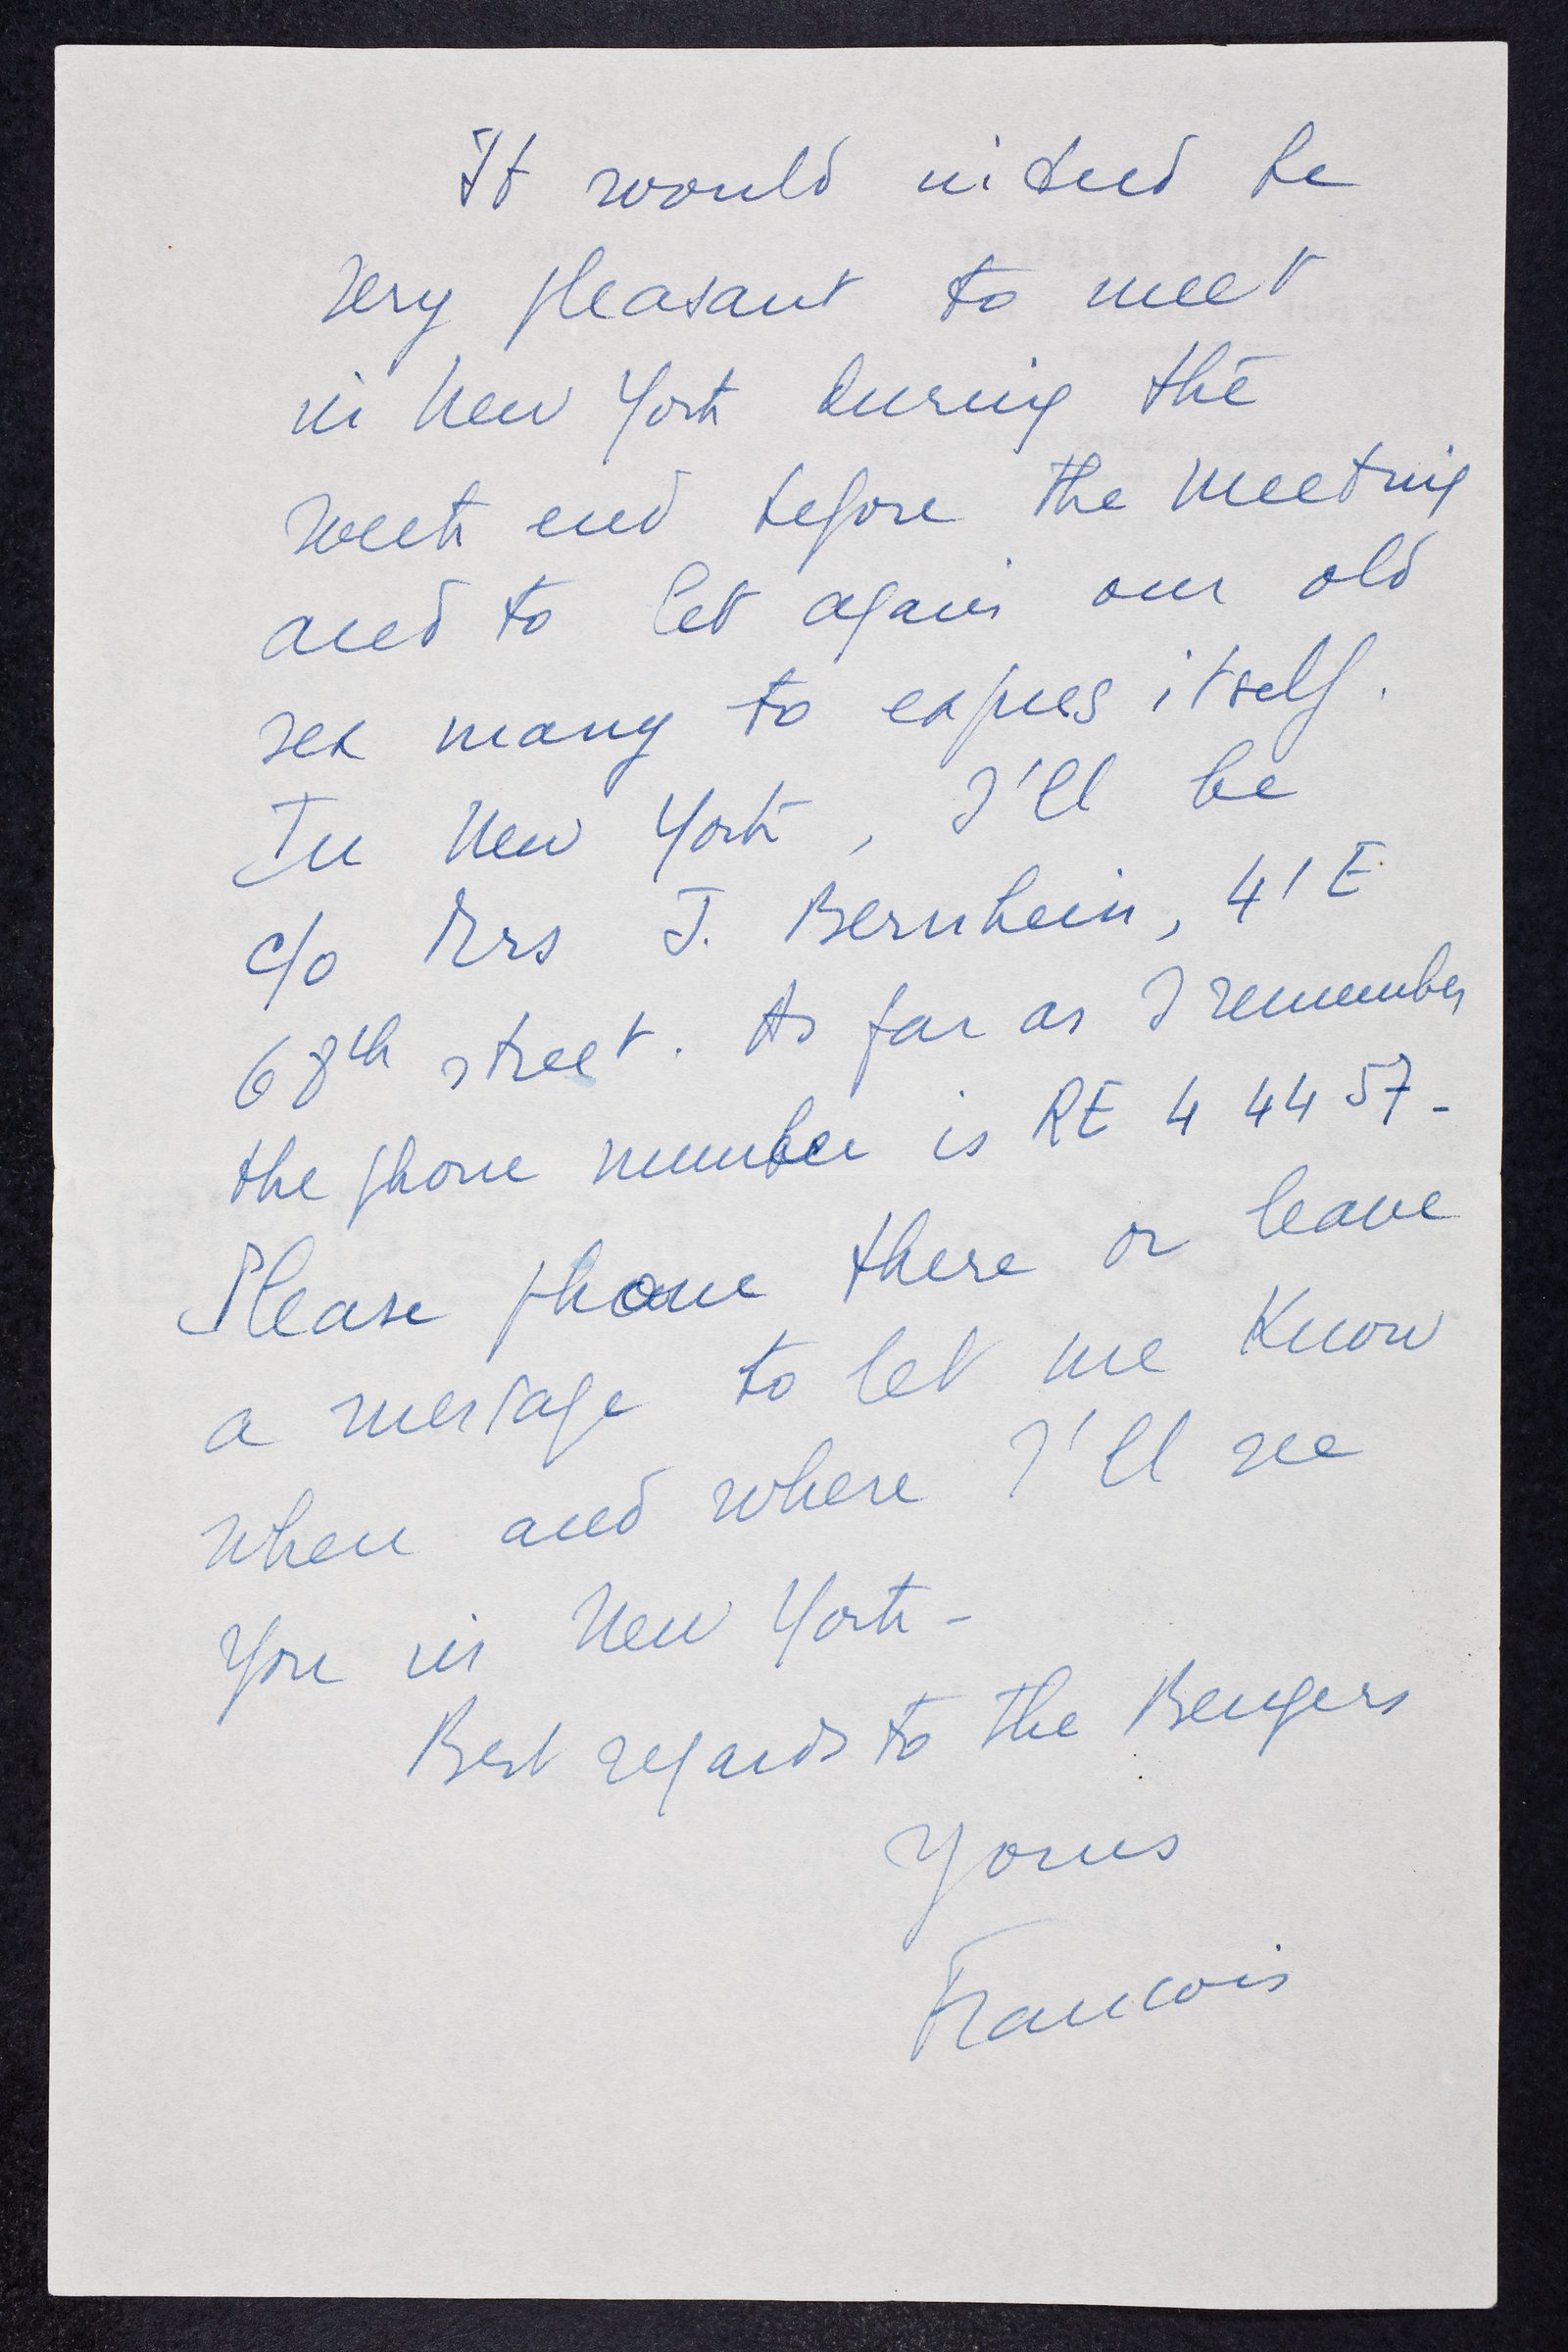 It would indeed be
very pleasant to meet
in New York during the
week end before the meeting
and to let again our old
sex many to expres itself.
In New York, I'll be
c/o Mrs J. Bernheim, 41 E
68th street. As far as I remember
the phone number is RE 4 44 57-
Please phone there or leave
a message to let me know
when and where I'll see
you in New York-
Best regards to the Bengers
Yours
Francois